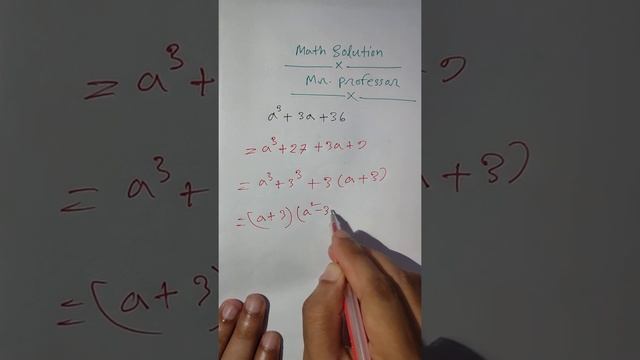 Math Solution
x
Mr. professor
x
a³ + 3a + 36
= a³ + 27 + 3a + 9
= a³ + 3³ + 3 (a + 3)
= (a + 3) (a² - 3